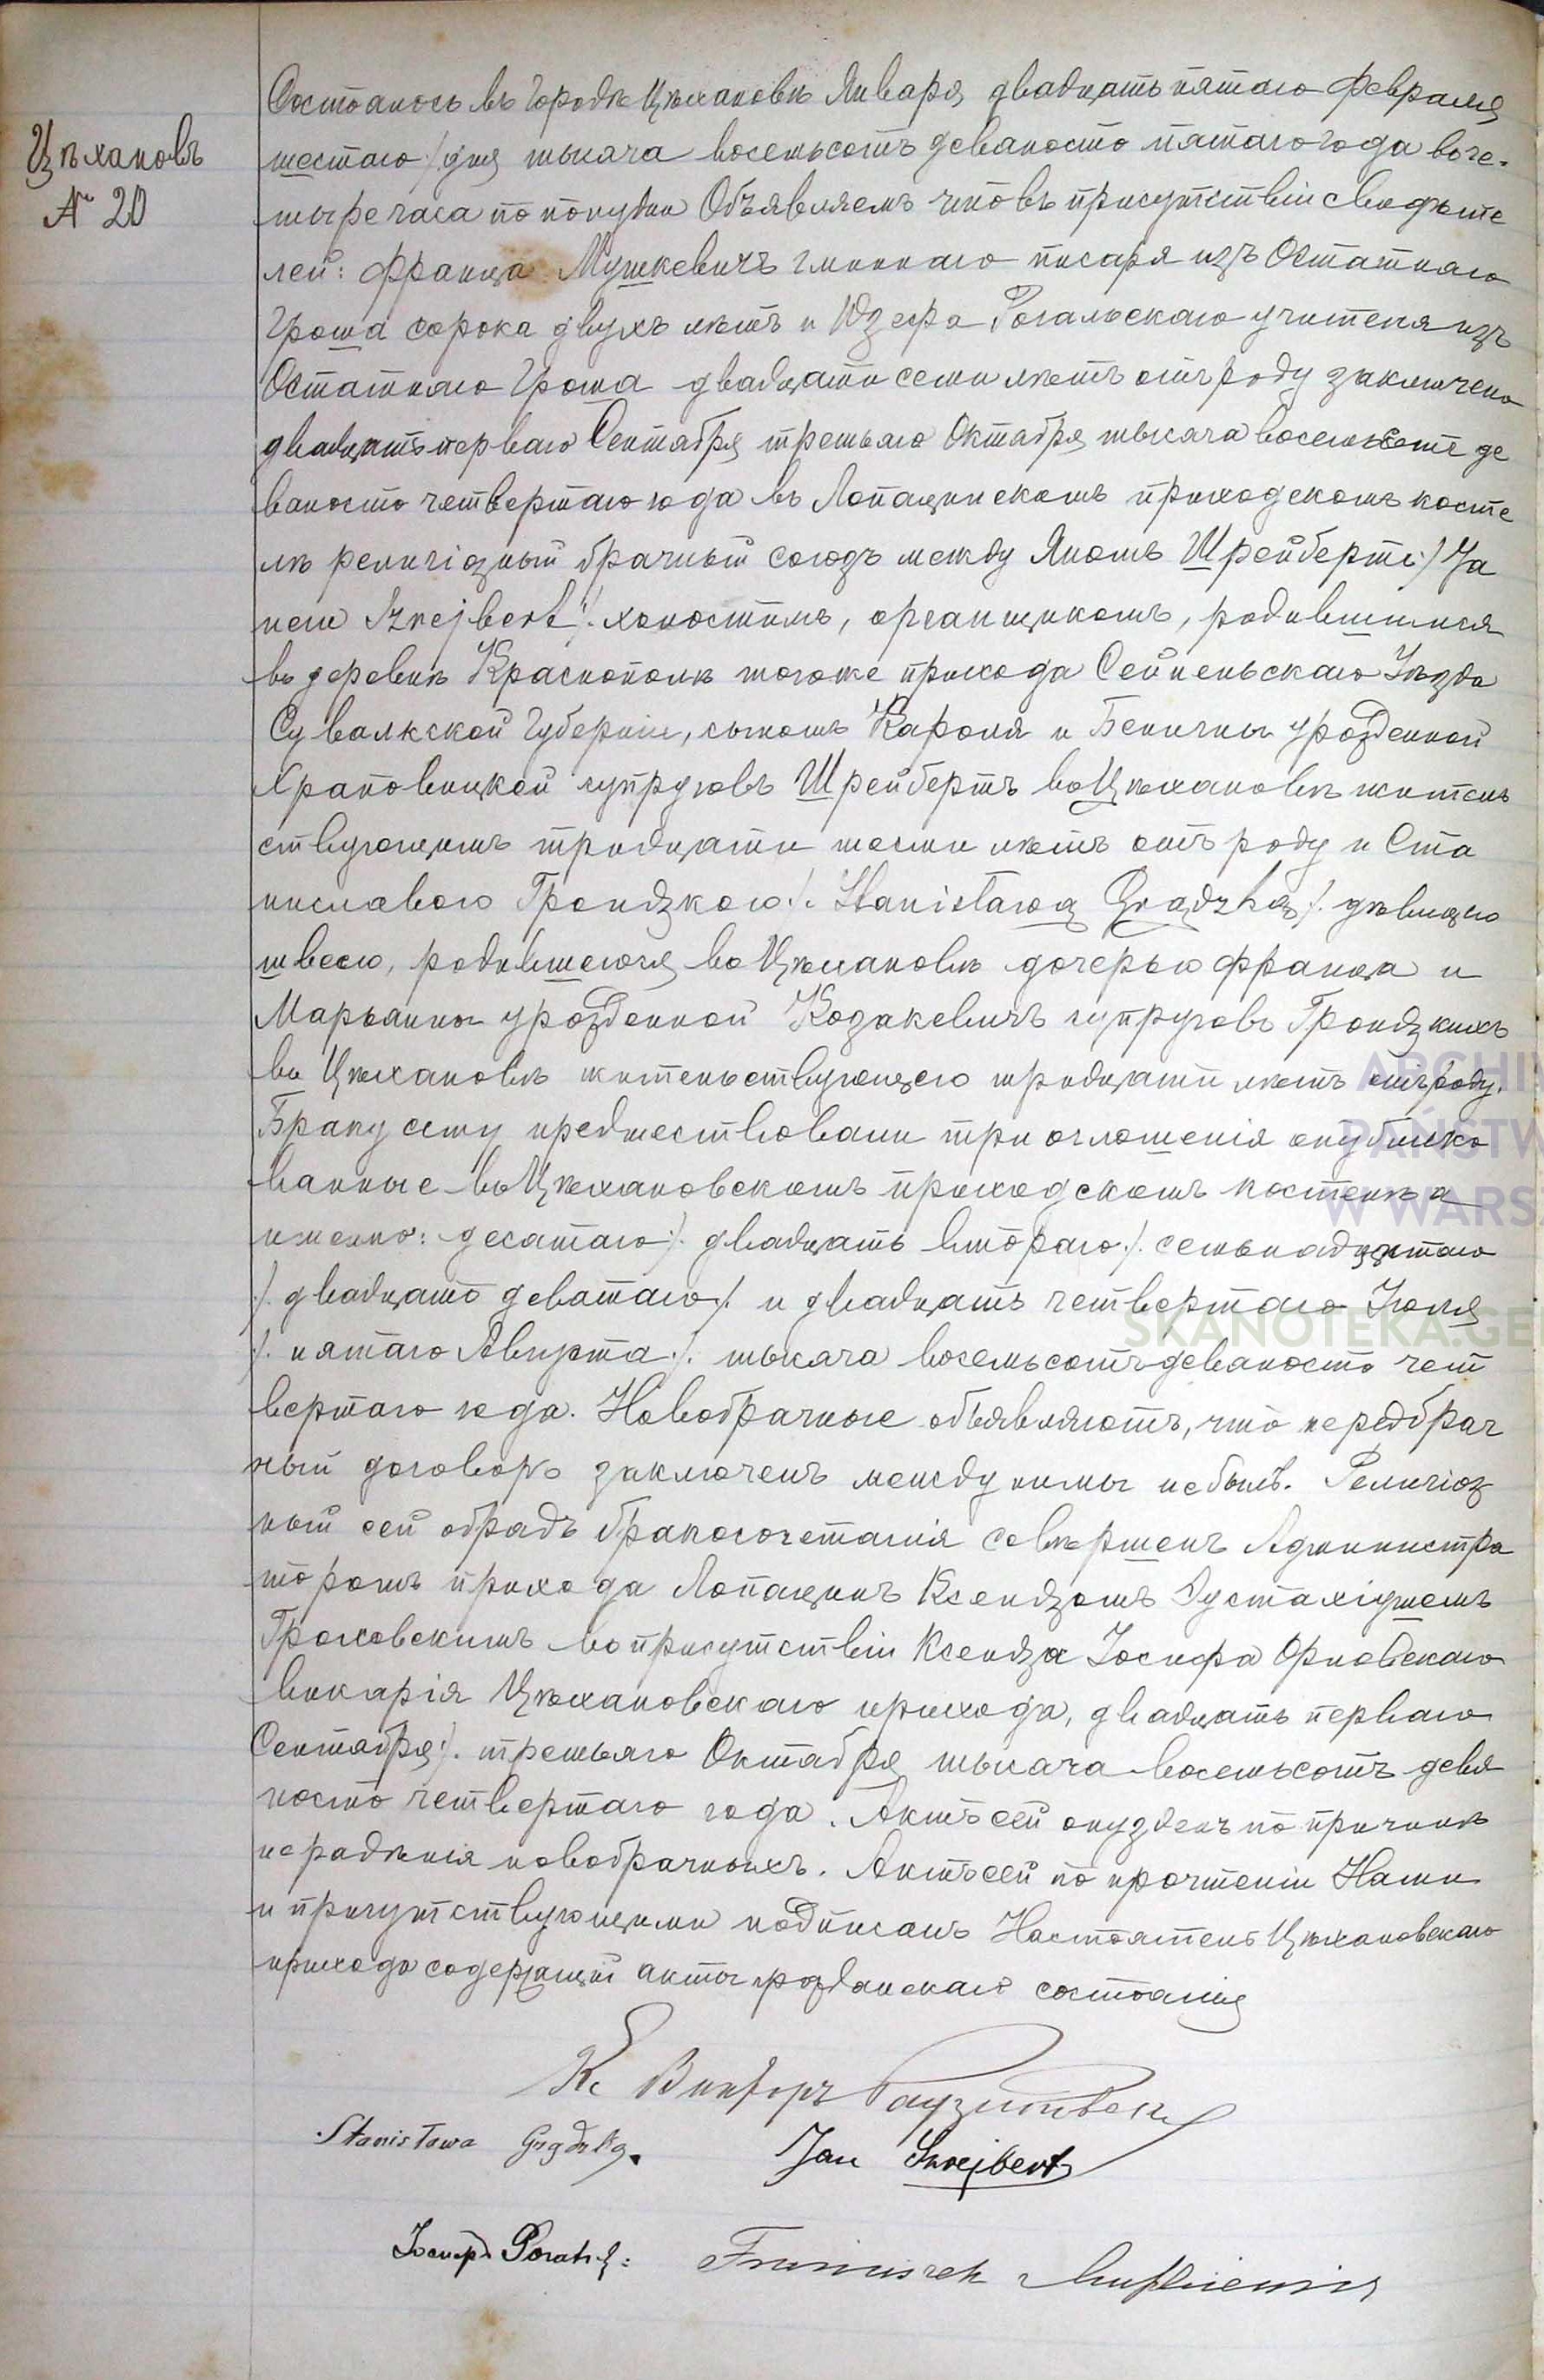 Цѣхановъ
№ 20
Состоялось въ городѣ Цѣхановѣ Января двадцать пятаго Февраля
шестаго /. дня тысяча восемьсотъ девяносто пятаго года въ че-
тыре часа по полудни Объявляемъ что въ присутствіи свидѣте
лей: Франца Мушкевичъ гминнаго писаря изъ Остатняго
Гроша сорока двухъ лѣтъ и Юзефа Рогальскаго учителя изъ
Остатняго Гроша двадцати семи лѣтъ отъ роду заключено
двадцать перваго Сентября третьяго Октября тысяча восемьсотъ де
вяносто четвертаго года въ Лопацинскомъ приходскомъ косте
лѣ религіозный брачный союзъ между Яномъ Шрейбертъ /. Ja
nem Szrejbert /. холостымъ, органщикомъ, родившимся
въ деревнѣ Краснополѣ тогоже прихода Сейненьскаго Уѣзда
Сувалкской Губерніи, сыномъ Кароля и Бенигны урожденной
Храповицкой супруговъ Шрейбертъ въ Цѣхановѣ житель
ствующимъ тридцати шести лѣтъ отъ роду и Ста
ниславою Грондзкою /. Stanisławą Grądzką /. дѣвицею
швеею, родившеюся въ Цѣхановѣ дочерью Франца и
Марьянны урожденной Козакевичъ супруговъ Грондзкихъ
въ Цѣхановѣ жительствующею тридцати лѣтъ отъ роду.
Браку сему предшествовали три оглошенія опублико
ванные въ Цѣхановскомъ приходскомъ костелѣ а
именно: десятаго /. двадцать втораго /. семьнадцатаго
/. двадцать девятаго /. и двадцать четвертаго Іюля
/. пятаго Августа /. тысяча восемьсотъ девяносто чет
вертаго года. Новобрачные объявляютъ, что передбрач
ный договоръ заключенъ между нимы небылъ. Религіоз
ный сей обрядъ бракосочетанія совершенъ Администра
торомъ прихода Лопацинъ Ксендзомъ Эустахіушемъ
Гроховскимъ въ присутствіи Ксендза Іосифа Орловскаго
викарія Цѣхановскаго прихода, двадцать перваго
Сентября /. третьяго Октября тысяча восемьсотъ девя
носто четвертаго года. Актъ сей опузденъ по причинѣ
нерадѣнія новобрачныхъ. Актъ сей по прочтеніи Нами
и присутствующими подписанъ Настоятель Цѣхановскаго
прихода содержащій акты гражданскаго состоянія
Кс Викторъ
Stanisława Grądzka. Jan Szrejbert
Іосифъ Franciszek Muszkiewicz
ARCHIW
PAŃSTW
W WARS
SKANOTEKA.GE